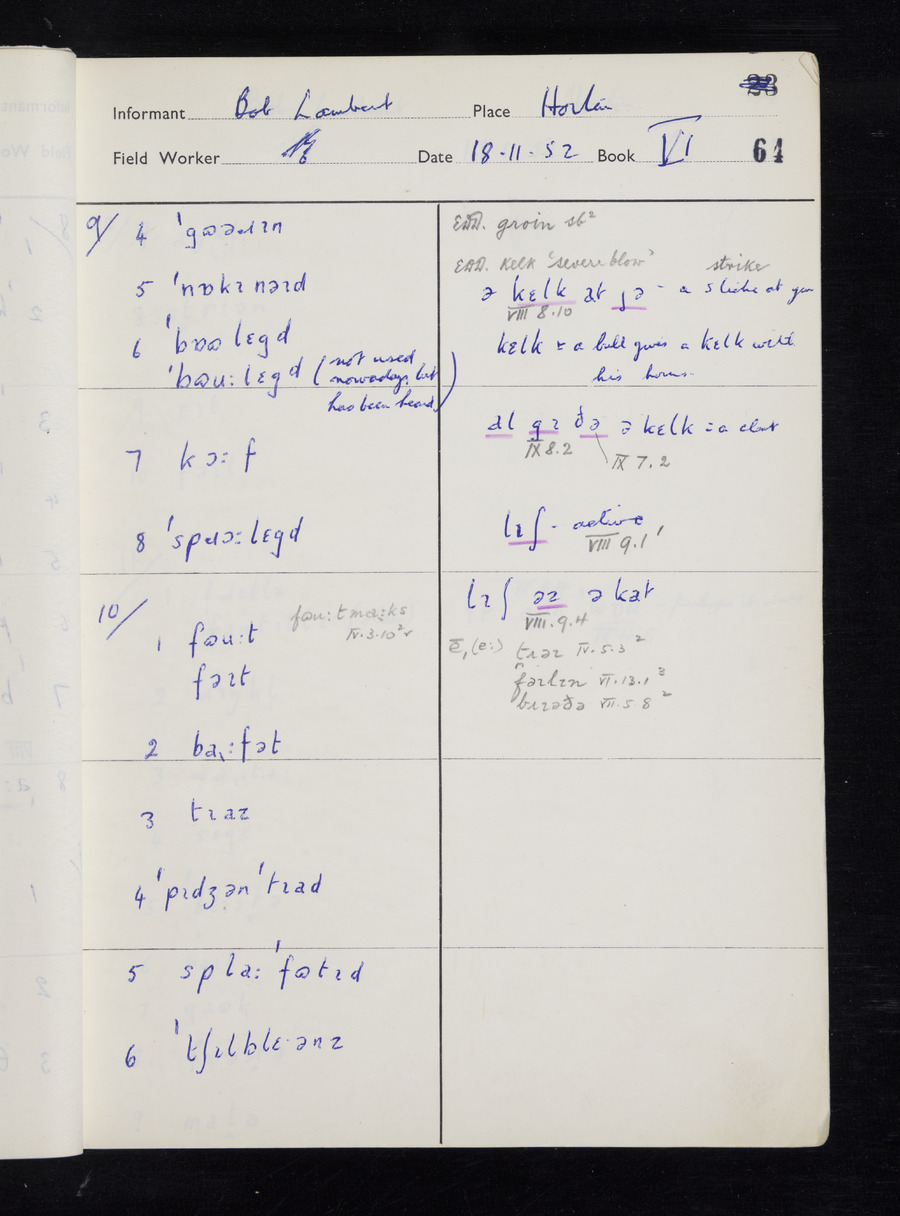 Informant Bob Lambert Place Horton 23
Field Worker Date 18·11·52 Book VI 64
9/ 4 ˈgɷəɹɪn
5 ˈnɒkɪ nəɪd
6 ˈbɒɷ lɛgd
ˈbɷu: lɛgd (not used
nowadays, but
has been heard)
7 kɔ: f
8 ˈspɹɔ: lɛgd
10/ fɷu: t ma:ks
IV·3·10² r
1 fɷu:t
fəɪt
2 ba:fət
3 tɪaz
4 ˈpɪdʒən ˈtɪad
5 spla: ˈfɷtɪd
6 ˈtʃɪlblɛ·ənz
EDD. groin sb²
EDD. kelk 'severe blow' strike
ə kɛlk at jə - a strike at you
VIII 8·10
kɛlk = a bull gives a kelk with
his horns.
al gɪ ðə ə kɛlk = a clout
IX 8.2
IX 7.2
lɪʃ - active
VIII 9.1
lɪʃ əz ə kat
VIII. 9.4
ē, (e:) tɪəz IV·5·3 ²
fəɪlɪn VI·13·1 ²
bɪzəðə VII·5·8 ²